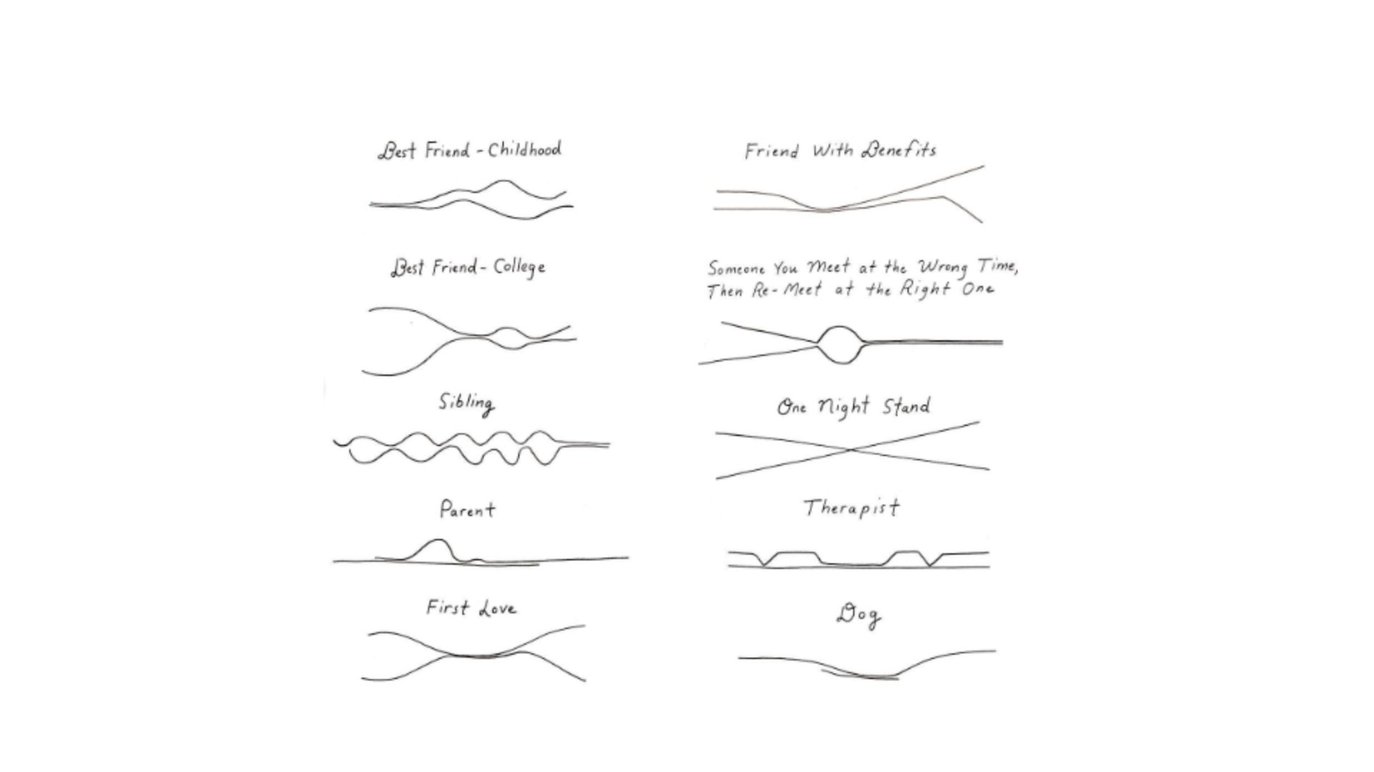 Best Friend - Childhood
Best Friend - College
Sibling
Parent
First Love
Friend With Benefits
Someone You Meet at the Wrong Time,
Then Re-Meet at the Right One
One Night Stand
Therapist
Dog